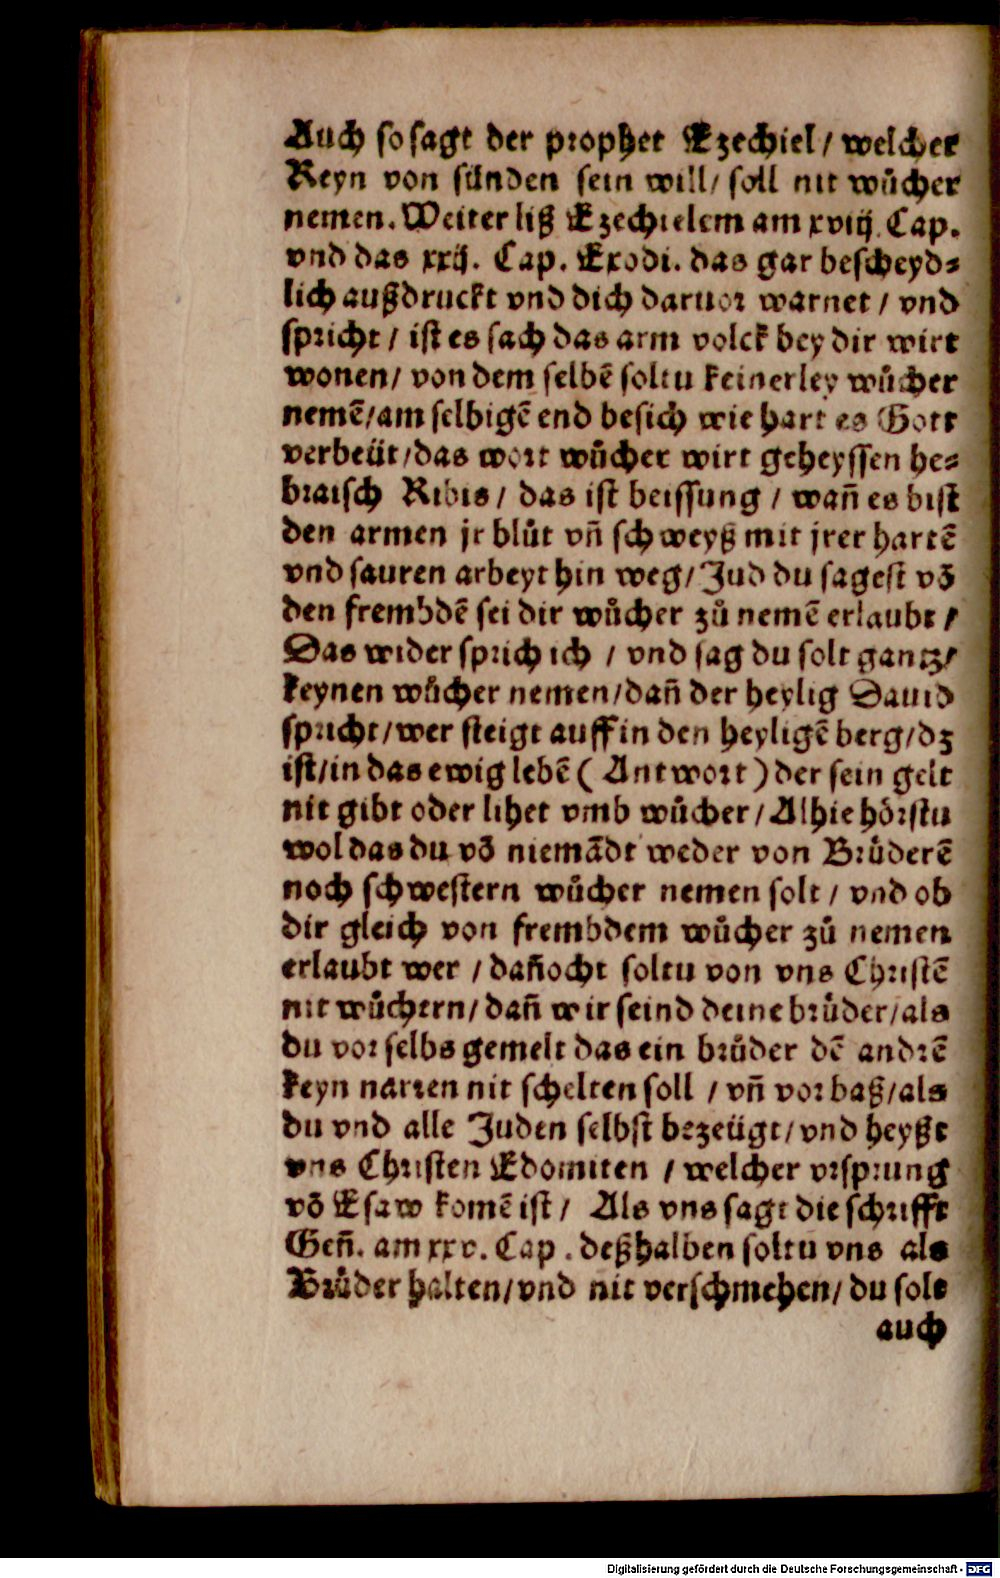 Auch so sagt der prophet Ezechiel / welcher
Reyn von sünden sein will / soll nit wůcher
nemen. Weiter liß Ezechielem am xviij. Cap.
vnd das xxij. Cap. Exodi. das gar bescheyd⸗
lich außdruckt vnd dich daruor warnet / vnd
spricht / ist es sach das arm volck bey dir wirt
wonen / von dem selbẽ soltu keinerley wůcher
nemẽ / am selbigẽ end besich wie hart es Gott
verbeüt / das wort wůcher wirt geheyssen he⸗
braisch Ribis / das ist beissung / wañ es bist
den armen jr blůt vñ schweyß mit jrer hartẽ
vnd sauren arbeyt hin weg / Jud du sagest võ
den frembdẽ sei dir wůcher zů nemẽ erlaubt /
Das wider sprich ich / vnd sag du solt gantz /
keynen wůcher nemen / dañ der heylig Dauid
spricht / wer steigt auff in den heyligẽ berg / dz
ist / in das ewig lebẽ ( Antwort ) der sein gelt
nit gibt oder lihet vmb wůcher / Alhie hörstu
wol das du võ niemãdt weder von Brůderẽ
noch schwestern wůcher nemen solt / vnd ob
dir gleich von frembdem wůcher zů nemen
erlaubt wer / dañocht soltu von vns Christẽ
nit wůchern / dañ wir seind deine brůder / als
du vor selbs gemelt das ein brůder dẽ andrẽ
keyn narren nit schelten soll / vñ vorbaß / als
du vnd alle Juden selbst bezeügt / vnd heyßt
vns Christen Edomiten / welcher vrsprung
võ Esaw komẽ ist / Als vns sagt die schrifft
Geñ. am xxv. Cap. deßhalben soltu vns als
Brůder halten / vnd nit verschmehen / du solt
auch
Digitalisierung gefördert durch die Deutsche Forschungsgemeinschaft - DFG